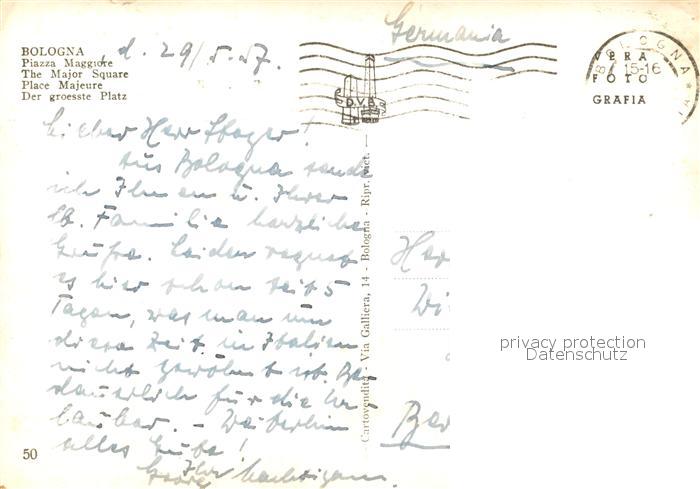 BOLOGNA
Piazza Maggiore
The Major Square
Place Majeure
Der groesste Platz
d. 29/5.57.
Germania
BOLOGNA
15-16
VERA
FOTO
GRAFIA
D.V.B.
Lieber Herr !
Aus Bologna sende
ich Ihnen u. Ihrer
lb. Familie herzliche
Grüße. Leider regnet
es hier schon seit 5
Tagen, was man um
diese Zeit in Italien
nicht gewöhnt ist. Be-
dauerlich für die Ur-
lauber. - Weiterhin
alles Gute!
Ihr
Georg
Cartovendita - Via Galliera, 14 - Bologna - Ripr. viet. -
Her
Wi
Ber
50
privacy protection
Datenschutz